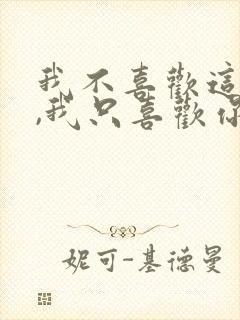 我不喜歡這
,我只喜歡你
妮可-基德曼